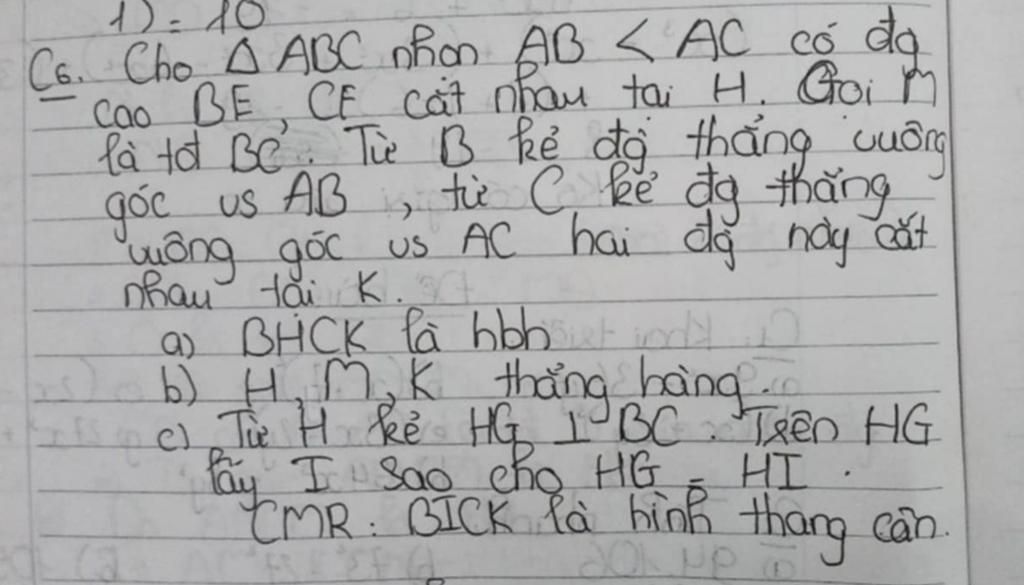 1) = 10
C6. Cho Δ ABC nhọn AB < AC có đg
cao BE, CF cắt nhau tại H. Gọi M
là tđ BC. Từ B kẻ đg thẳng vuông
góc vs AB, từ C kẻ đg thẳng
vuông góc vs AC hai đg này cắt
nhau tại K.
a) BHCK là hbh
b) H, M, K thẳng hàng.
c) Từ H kẻ HG ⊥ BC. Trên HG
lấy I sao cho HG = HI.
CMR: BICK là hình thang cân.